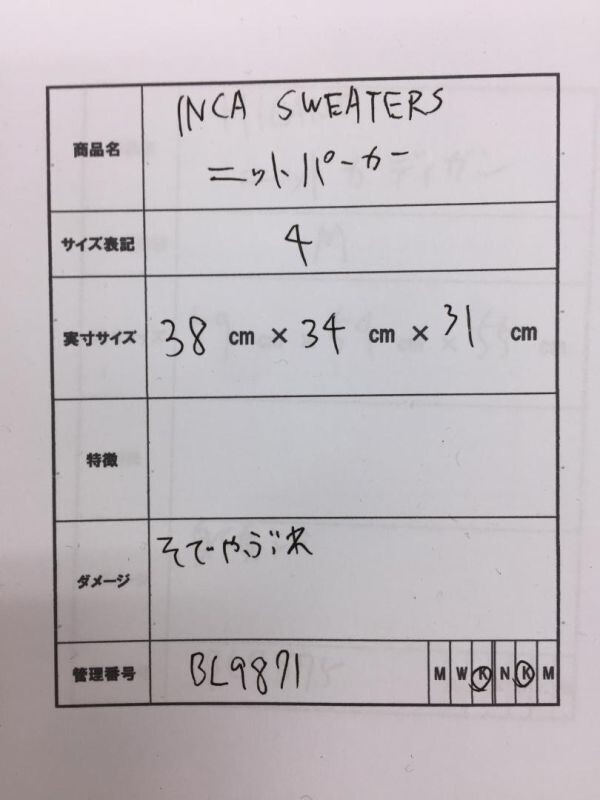 商品名
INCA SWEATERS
ニットパーカー
サイズ表記
4
実寸サイズ
38 cm × 34 cm × 31 cm
特徴
ダメージ
そでやぶれ
管理番号
BL9871
M W K N K M